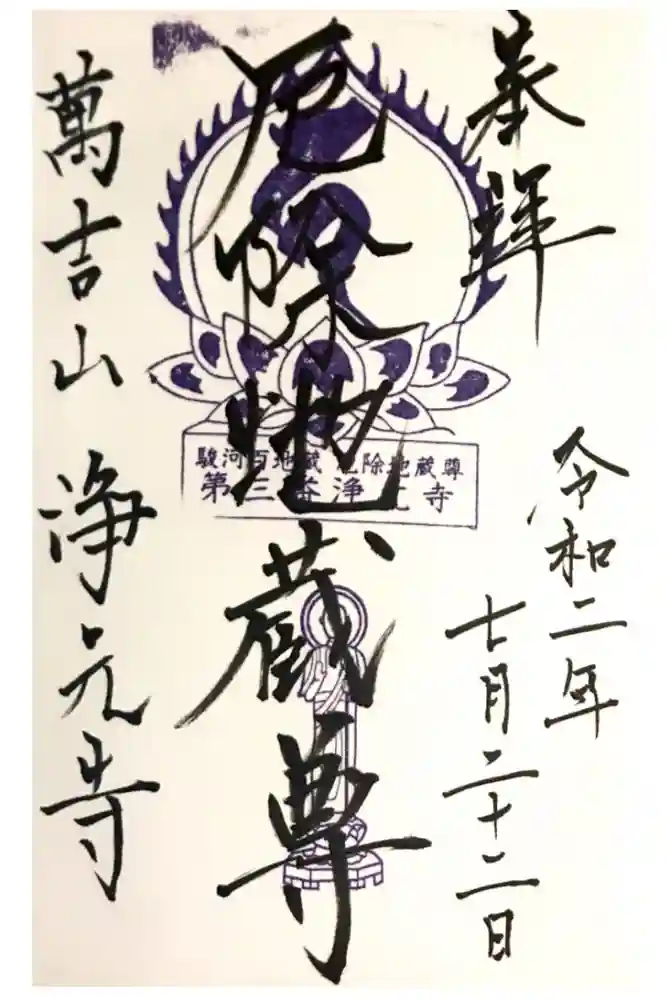 奉拝
令和二年
七月二十二日
厄除地蔵尊
萬吉山 浄元寺
駿河百地蔵 厄除地蔵尊
第三番浄元寺